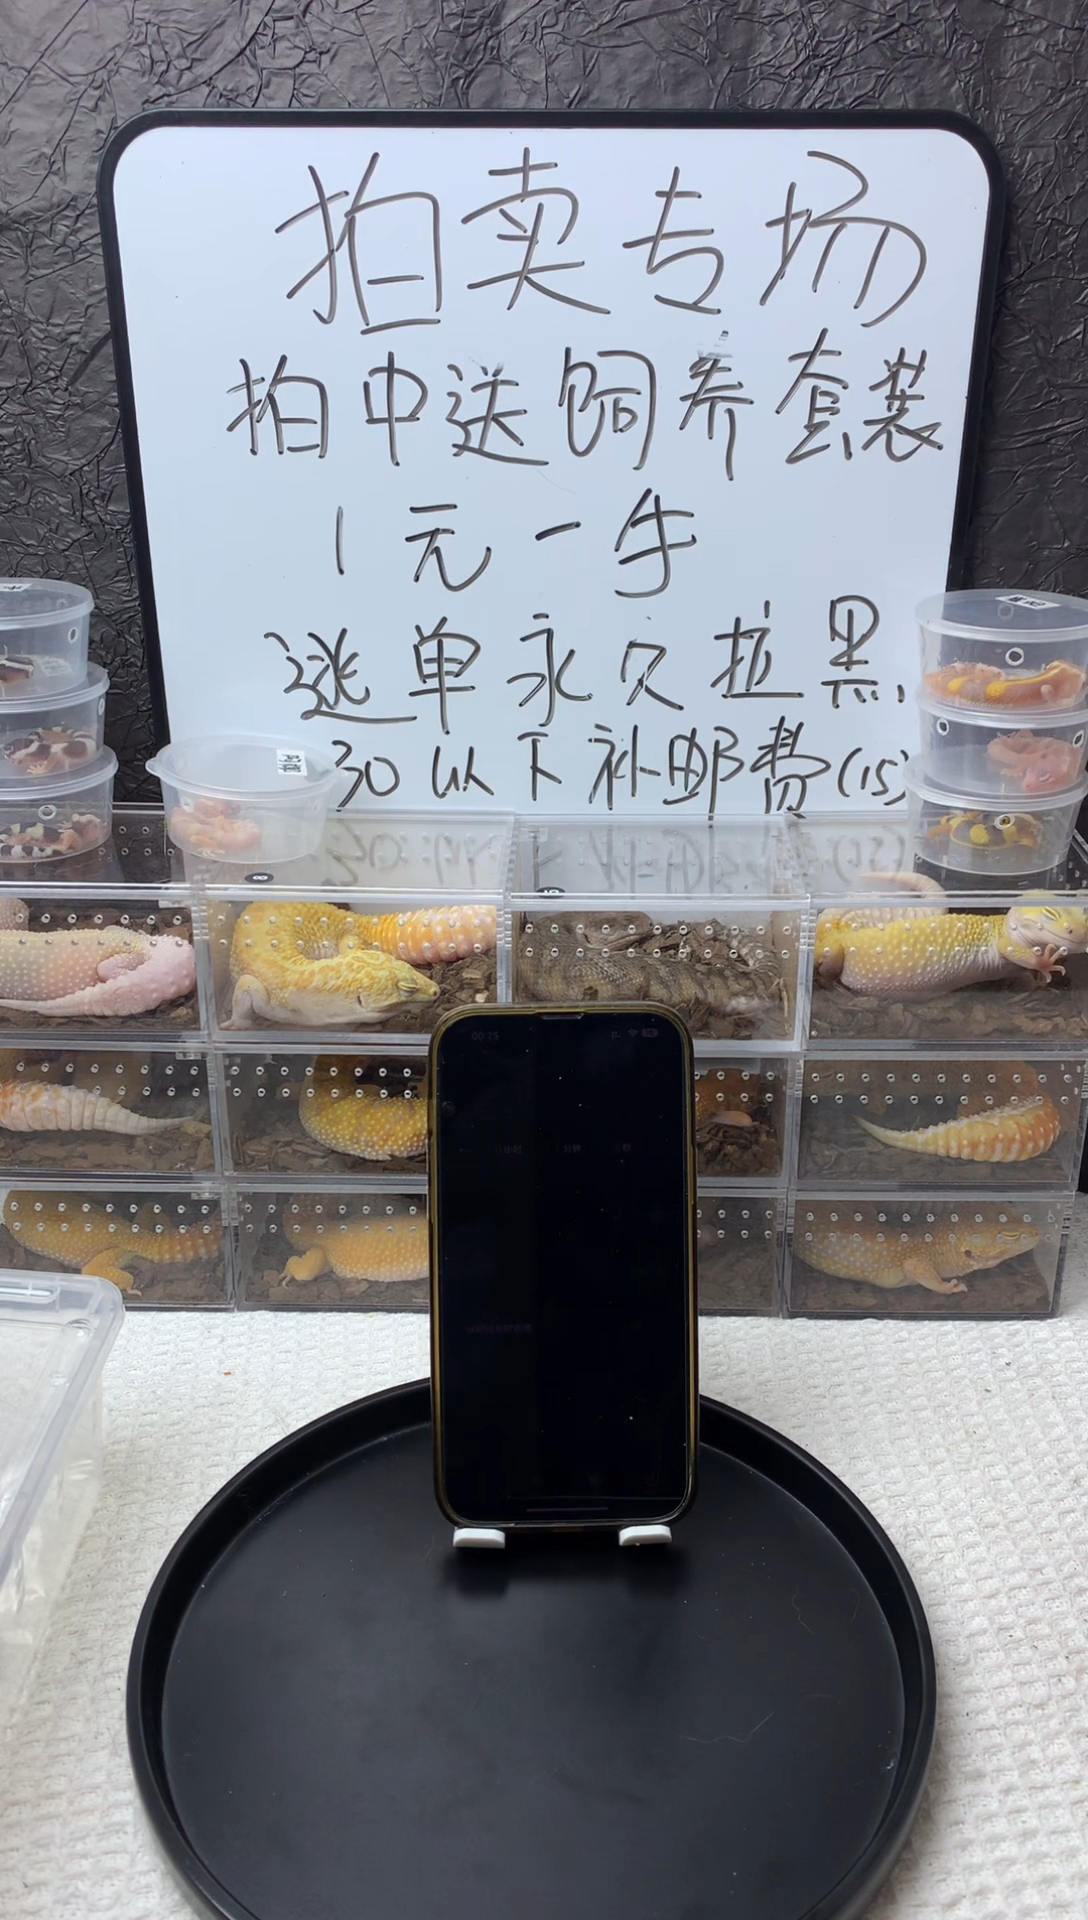 拍卖专场
拍中送饲养套装
1元一手
逃单永久拉黑
30以下补邮费(15)
00:25